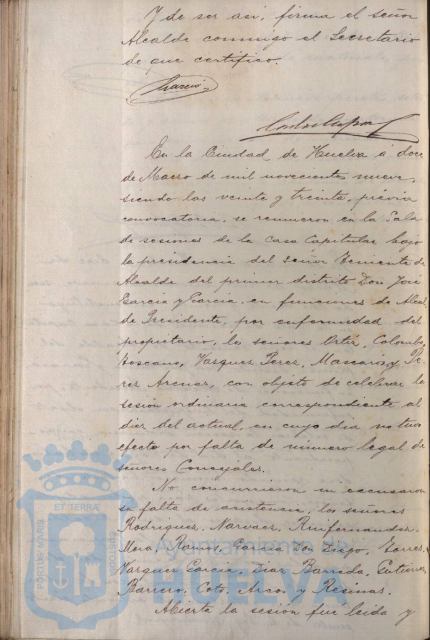 Y de ser así, firma el señor
Alcalde conmigo el Secretario
de que certifico.
García
En la Ciudad de Huelva a doce
de Marzo de mil novecientos nueve,
siendo las veinte y treinta, previa
convocatoria, se reunieron en la Sala
de sesiones de la Casa Capitular bajo
la presidencia del Señor Teniente de
Alcalde del primer distrito Don José
García y García, en funciones de Alcal
de Presidente, por enfermedad del
propietario, los señores Ortiz, Colombo,
Toscano, Vazquez Perez, Mascaros y Pe
rez Arenas, con objeto de celebrar la
sesión ordinaria correspondiente al
diez del actual, en cuyo día no tuvo
efecto por falta de número legal de
señores Concejales.
No concurrieron ni excusaron
su falta de asistencia, los señores
Rodriguez, Narvaez, Ruifernandez,
Mora, Ramos, García Don Diego, Torres,
Vazquez García, Diaz Barreda, Gutierrez
Barrero, Coto, Arcos y Resinas.
Abierta la sesión fué leida y
Ayuntamiento de
HUELVA
ET TERRÆ
PORTUS MARIS
CUSTODIA